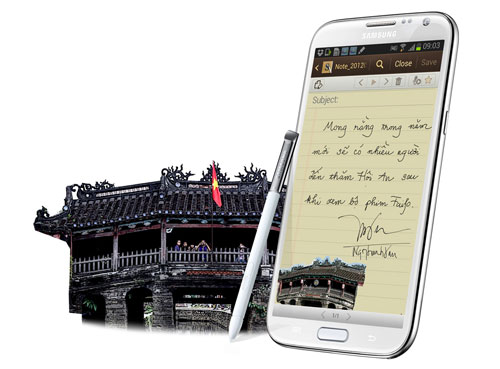 SAMSUNG
09:03
Note_2012
Close
Save
Subject:
Mong rằng trong năm
mới sẽ có nhiều người
đến thăm Hội An sau
khi xem bộ phim Fuyo.
Ngo Thanh Van
1/1